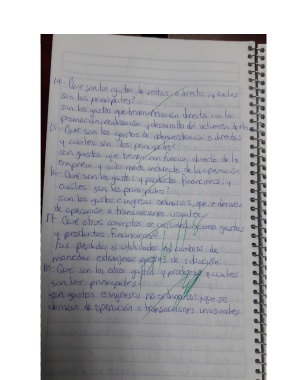 14.- Que son los gastos de ventas o directos y cuales
son los principales?
son los gastos que tienen relación directa con la
promoción, realización y desarrollo de volumen de
15.- Que son los gastos de administración o
y cuales son los principales?
son gastos que tienen función directa de la
empresa y solo modo indirecto de la operación
16.- Que son los gastos y productos financieros y
cuales son los principales?
Son los gastos e ingresos ordinarios, que se derivan
de operación o transacciones usuales.
17.- Que otros conceptos se consideran como gastos
y productos financieros
Las perdidas o utilidades en cambios de
monedas extranjeras gastos de situación.
18.- Que son los otros gastos y productos y cuales
son los principales
son gastos e ingresos no ordinarios que se
derivan de operación o transacciones inusuales.